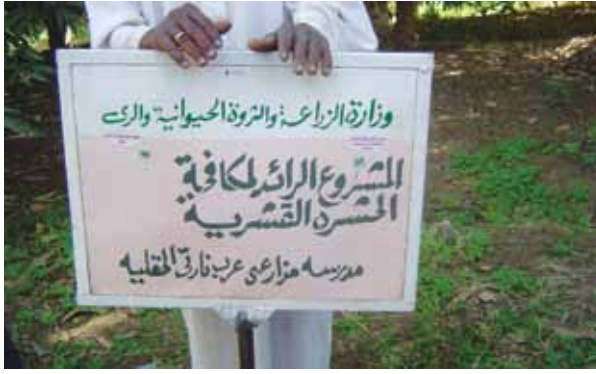 وزارة الزراعة والثروة الحيوانية والرى
المشروع الرائد لمكافحة
الحشرة القشرية
مدرسه مزارعى عرب نارتى الحقليه